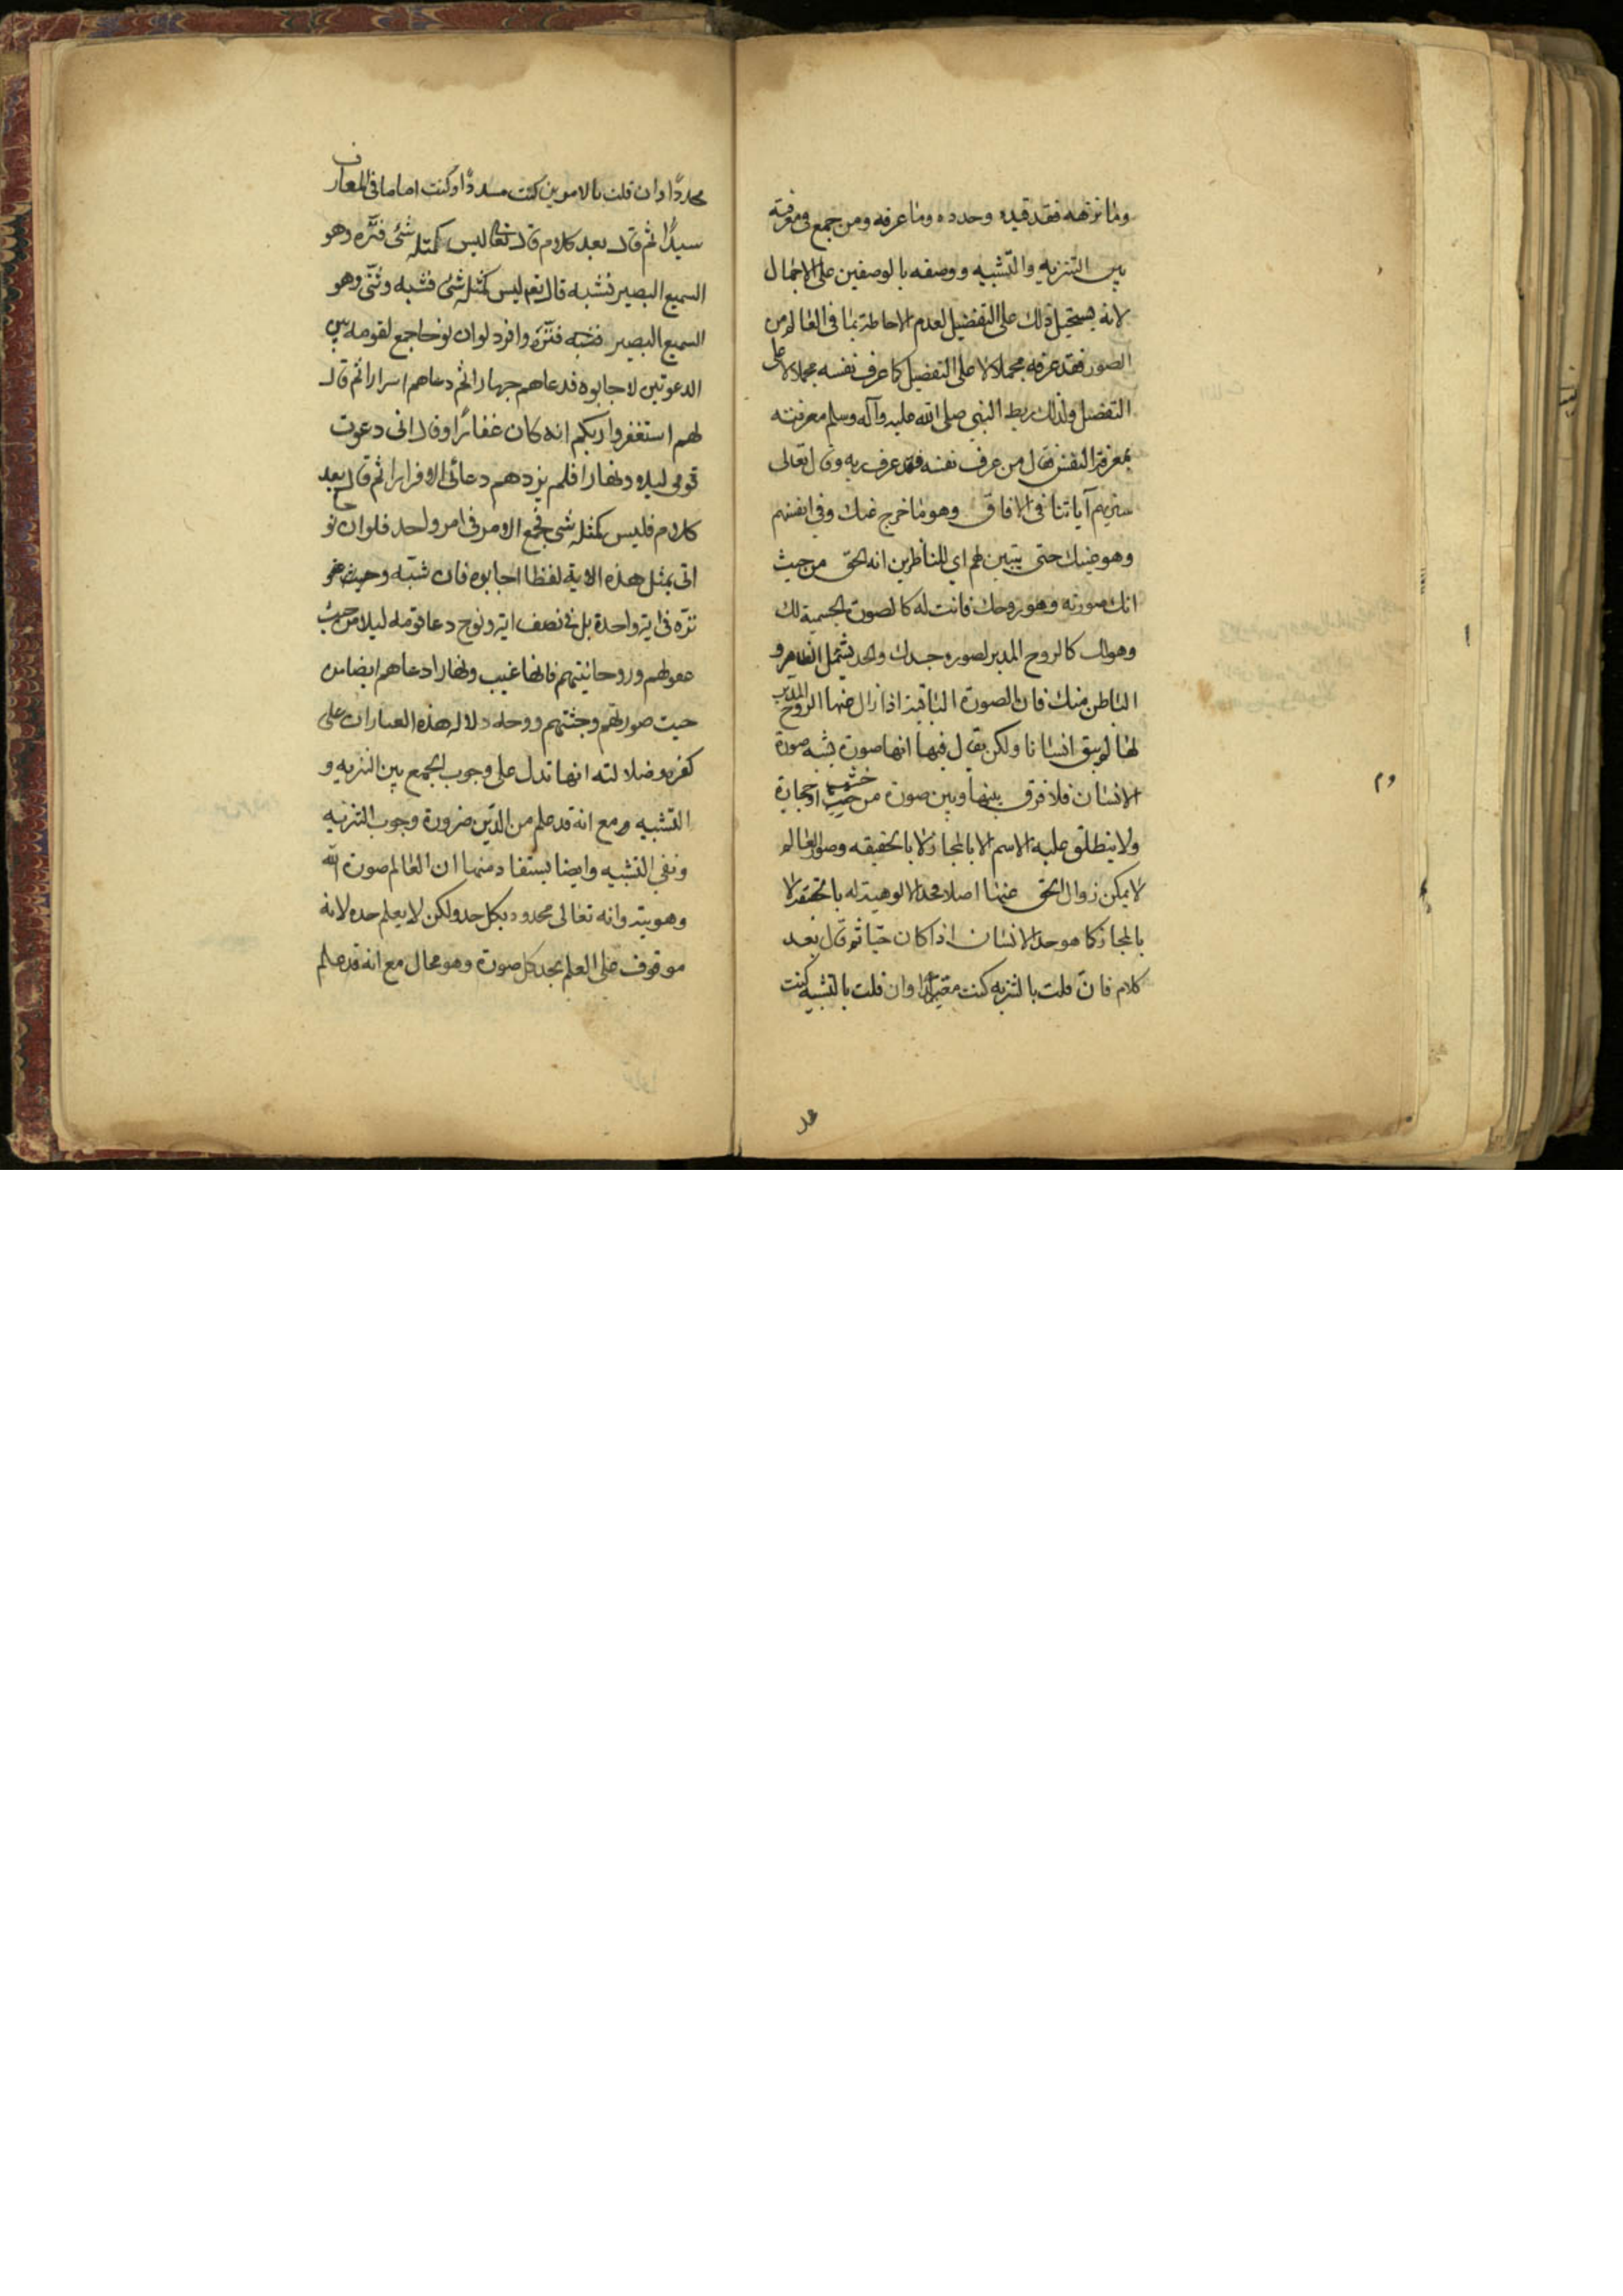 وما نزهه فقد قيده وحدده وما عرفه ومن جمع في معرفته
بين التنزيه والتشبيه ووصفه بالوصفين على الاجمال
لانه يستحيل ذلك على التفضيل لعدم الاحاطة بما في العالم من
الصور فقد عرفه مجملا لا على التفضيل كما عرف نفسه مجملا لا على
التفضل ولذلك ربط النبي صلى الله عليه وآله وسلم معرفته
بمعرفة النفس فقال من عرف نفسه فقد عرف ربه وقال تعالى
سنريهم آياتنا في الافاق وهو ما خرج عنك وفي انفسهم
وهو عينك حتى يتبين لهم اي للناظرين انه الحق من حيث
انك صورته وهو روحك فانت له كالصورة الجسمية لك
وهو لك كالروح المدبر لصورة جسدك والحد يشمل الظاهر و
الباطن منك فان الصورة الباقية اذا زال عنها الروح المدبر
لها لم يبق انسانا ولكن يقال فيها انها صورة تشبه صورة
الانسان فلا فرق بينها وبين صورة من خشب او حجارة
ولا ينطلق عليه الاسم الا بالمجاز لا بالحقيقه وصور العالم
لا يمكن زوال الحق عنها اصلا فحد الالوهية له بالحقيقة لا
بالمجاز كما هو حد الانسان اذا كان حيا ثم قال بعد
كلام فان قلت بالتنزيه كنت مقيدا وان قلت بالتشبيه كنت
محددا وان قلت بالامرين كنت مسددا وكنت اماما في المعارف
سيدا ثم قال بعد كلام قال تعالى ليس كمثله شئ فنزه وهو
السميع البصير فشبه قال تعم ليس كمثله شئ فشبه وثنى وهو
السميع البصير فشبه فنزه وافرد لو ان نوحا جمع لقومه بين
الدعوتين لاجابوه فدعاهم جهارا ثم دعاهم اسرارا ثم قال
لهم استغفروا ربكم انه كان غفارا وقال انى دعوت
قومى ليلا ونهارا فلم يزدهم دعائى الا فرارا ثم قال بعد
كلام فليس كمثله شى فجمع الامر فى امر واحد فلو ان نوحا
اتى بمثل هذه الاية لفظا اجابوه فان شبه وحيث هو
نزه فى اية واحدة بل فى نصف اية ونوح دعا قومه ليلا من حيث
عقولهم وروحانيتهم فانها غيب ونهارا دعاهم ايضا من
حيث صورتهم وجثتهم ووجه دلاله هذه العبارات على
كفره وضلالته انها تدل على وجوب الجمع بين التنزيه و
التشبيه ومع انه قد علم من الدين ضرورة وجوب التنزيه
ونفي التشبيه وايضا يستفاد منها ان العالم صورة الله
وهويته وانه تعالى محدود بكل حد ولكن لا يعلم حده لانه
موقوف على العلم بحد كل صورة وهو محال مع انه قد علم